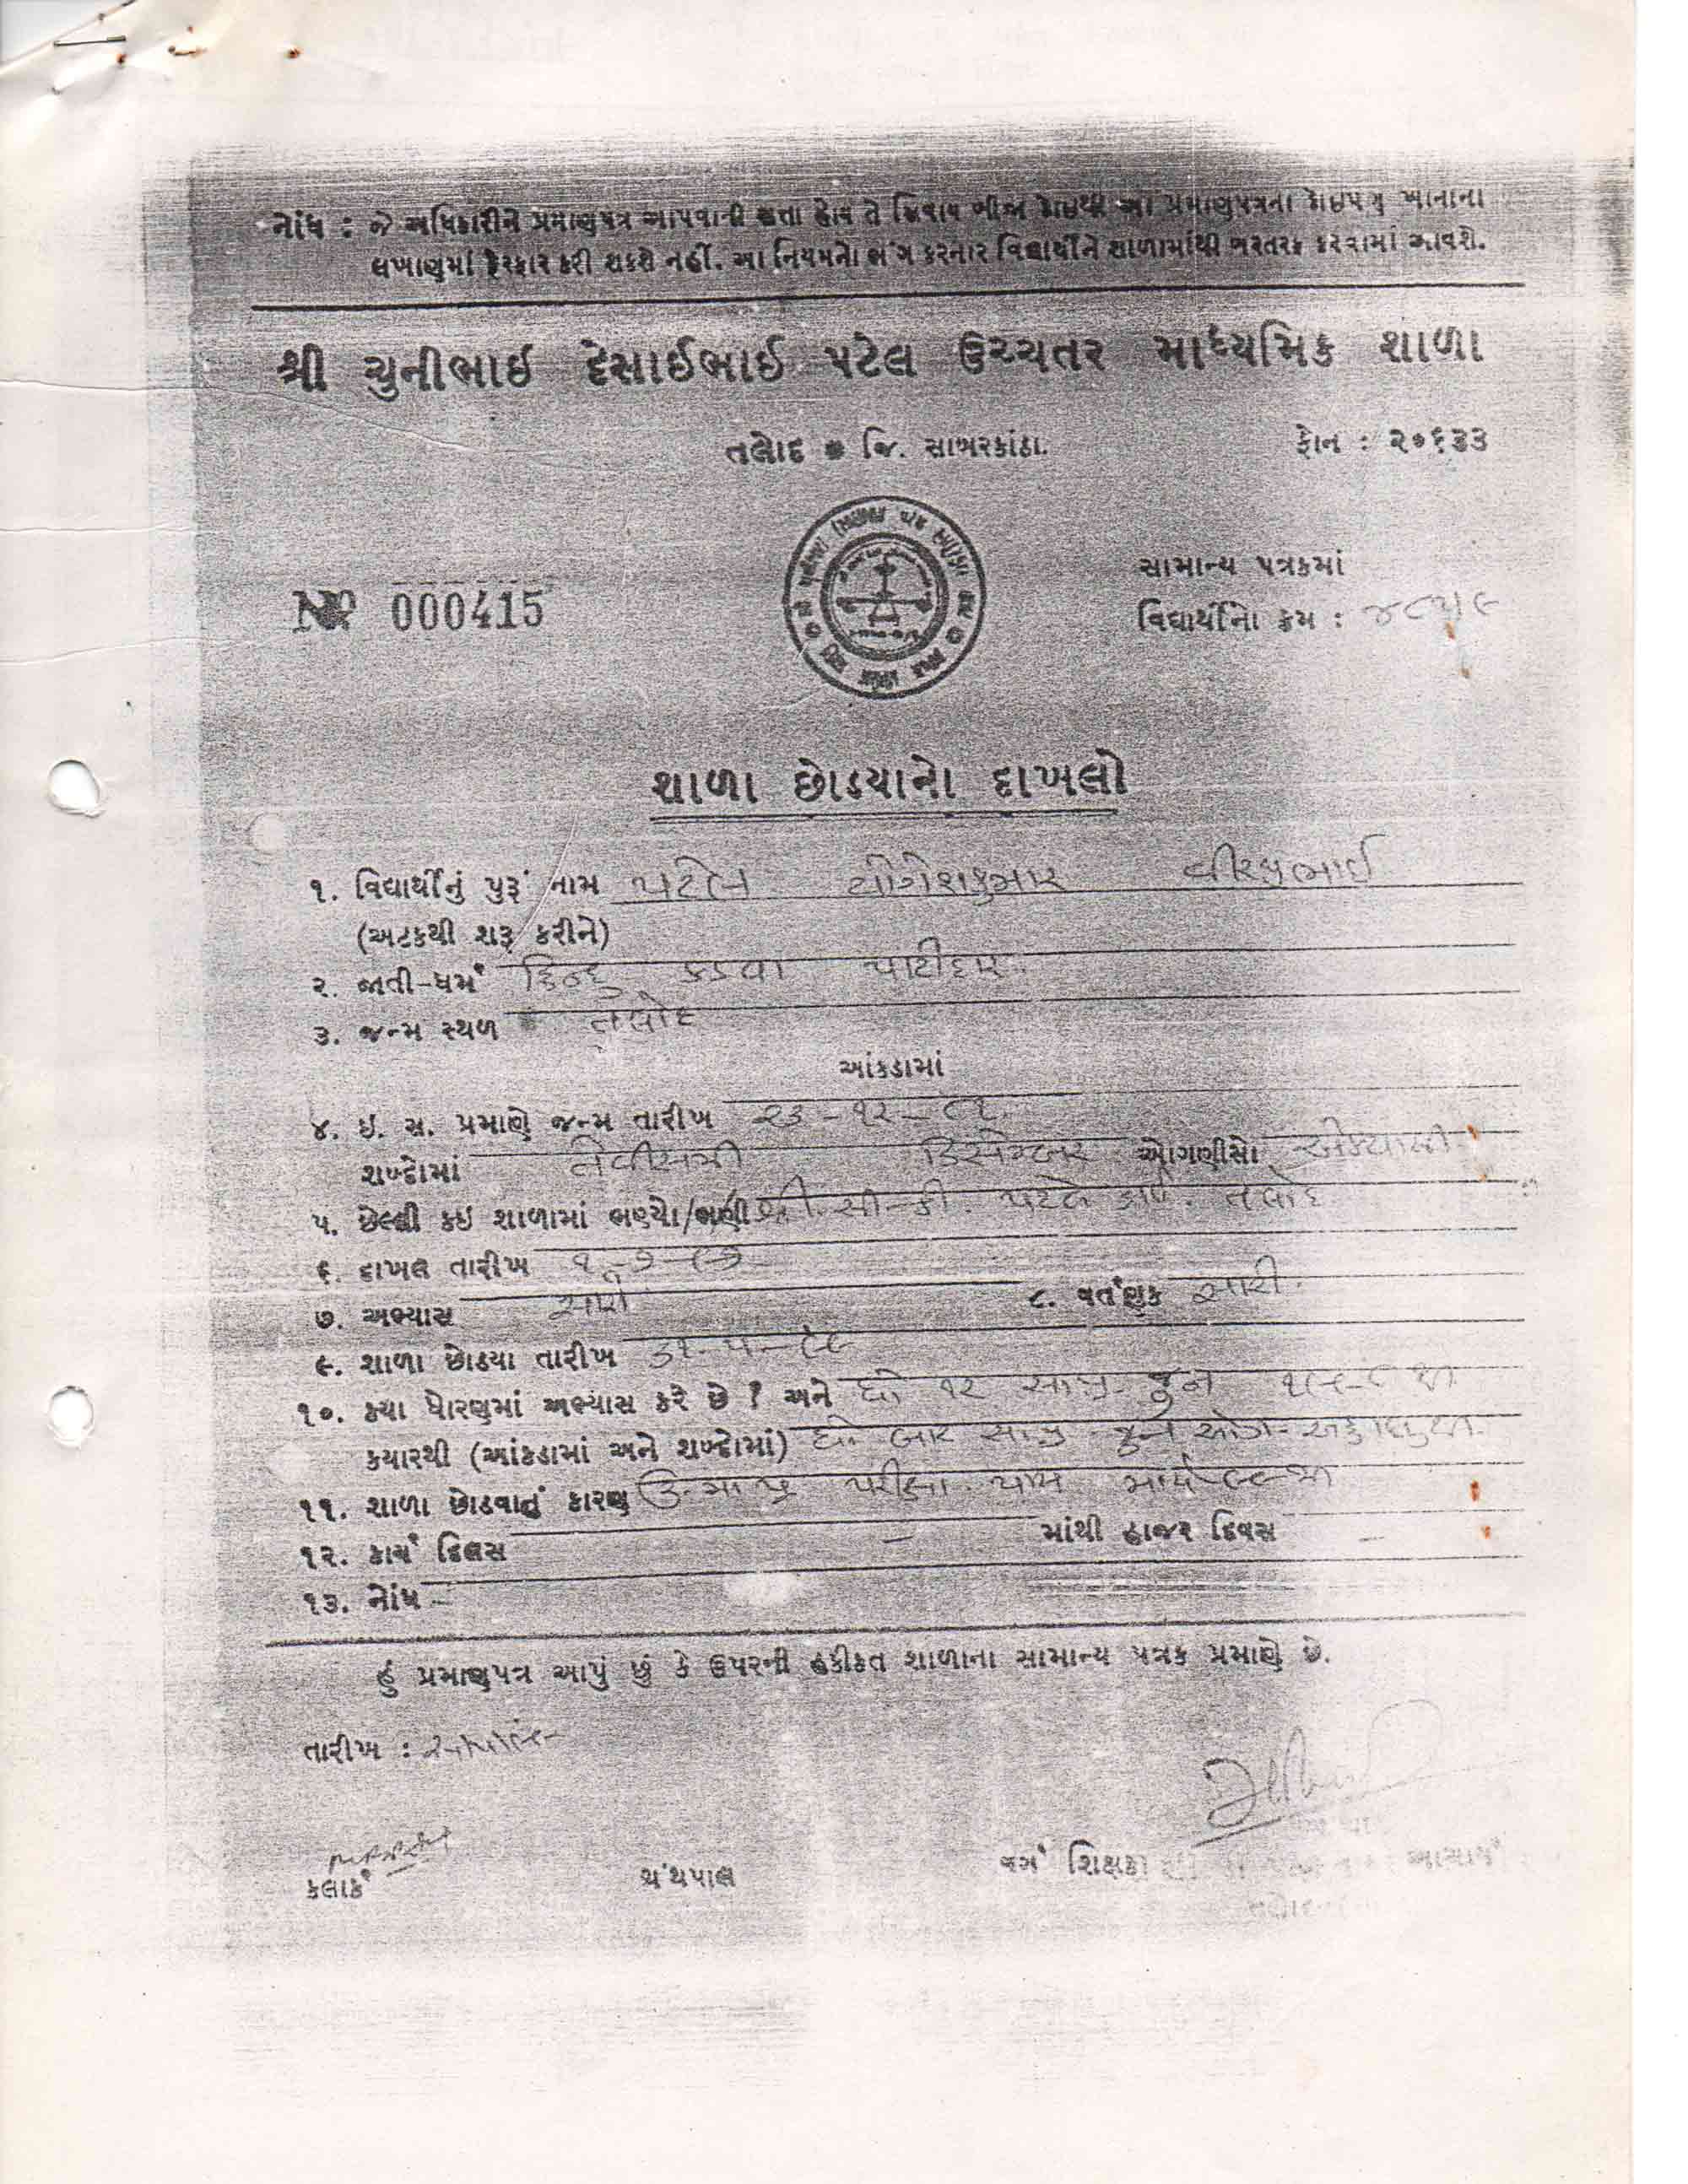 નોંધ : જે અધિકારીને પ્રમાણપત્ર આપવાની સત્તા હોય તે સિવાય બીજા કોઇથી આ પ્રમાણપત્રના કોઇપણ ખાનાના
લખાણમાં ફેરફાર કરી શકશે નહીં. આ નિયમનો ભંગ કરનાર વિદ્યાર્થીને શાળામાંથી બરતરફ કરવામાં આવશે.
શ્રી ચુનીભાઈ દેસાઈભાઈ પટેલ ઉચ્ચતર માધ્યમિક શાળા
તલોદ જિ. સાબરકાંઠા. ફોન : ૨૦૬૩૩
સામાન્ય પત્રકમાં
No 000415 વિદ્યાર્થીનો ક્રમ :
શાળા છોડયાનો દાખલો
૧. વિદ્યાર્થીનું પુરૂં નામ પટેલ યોગેશકુમાર વીરાભાઈ
(અટકથી શરૂ કરીને)
૨. જાતી-ધર્મ હિન્દુ કડવા પાટીદાર.
૩. જન્મ સ્થળ તલોદ
આંકડામાં
૪. ઇ. સ. પ્રમાણે જન્મ તારીખ ૨૩-૧૨-૮૧
શબ્દોમાં ત્રેવીસમી ડિસેમ્બર ઓગણીસો એક્યાસી
૫. છેલ્લી કઇ શાળામાં ભણ્યો/ભણી શ્રી. સી-ડી. પટેલ હાઈ. તલોદ
૬. દાખલ તારીખ ૧-૭-૯૭
૭. અભ્યાસ સારો ૮. વર્તણુક સારી.
૯. શાળા છોડયા તારીખ ૩૧-૫-૯૯
૧૦. કયા ધોરણમાં અભ્યાસ કરે છે ? અને ધો ૧૨ સાપ્ર જુન
કયારથી (આંકડામાં અને શબ્દોમાં) ધો. બાર સાપ્ર જુન
૧૧. શાળા છોડવાનું કારણ ઉ.મા.પ્ર પરીક્ષા પાસ માર્ચ-૯૯માં
૧૨. કાર્ય દિવસ - માંથી હાજર દિવસ -
૧૩. નોંધ -
હું પ્રમાણપત્ર આપું છું કે ઉપરની હકીકત શાળાના સામાન્ય પત્રક પ્રમાણે છે.
તારીખ :
કલાર્ક ગ્રંથપાલ વર્ગ શિક્ષક આચાર્ય